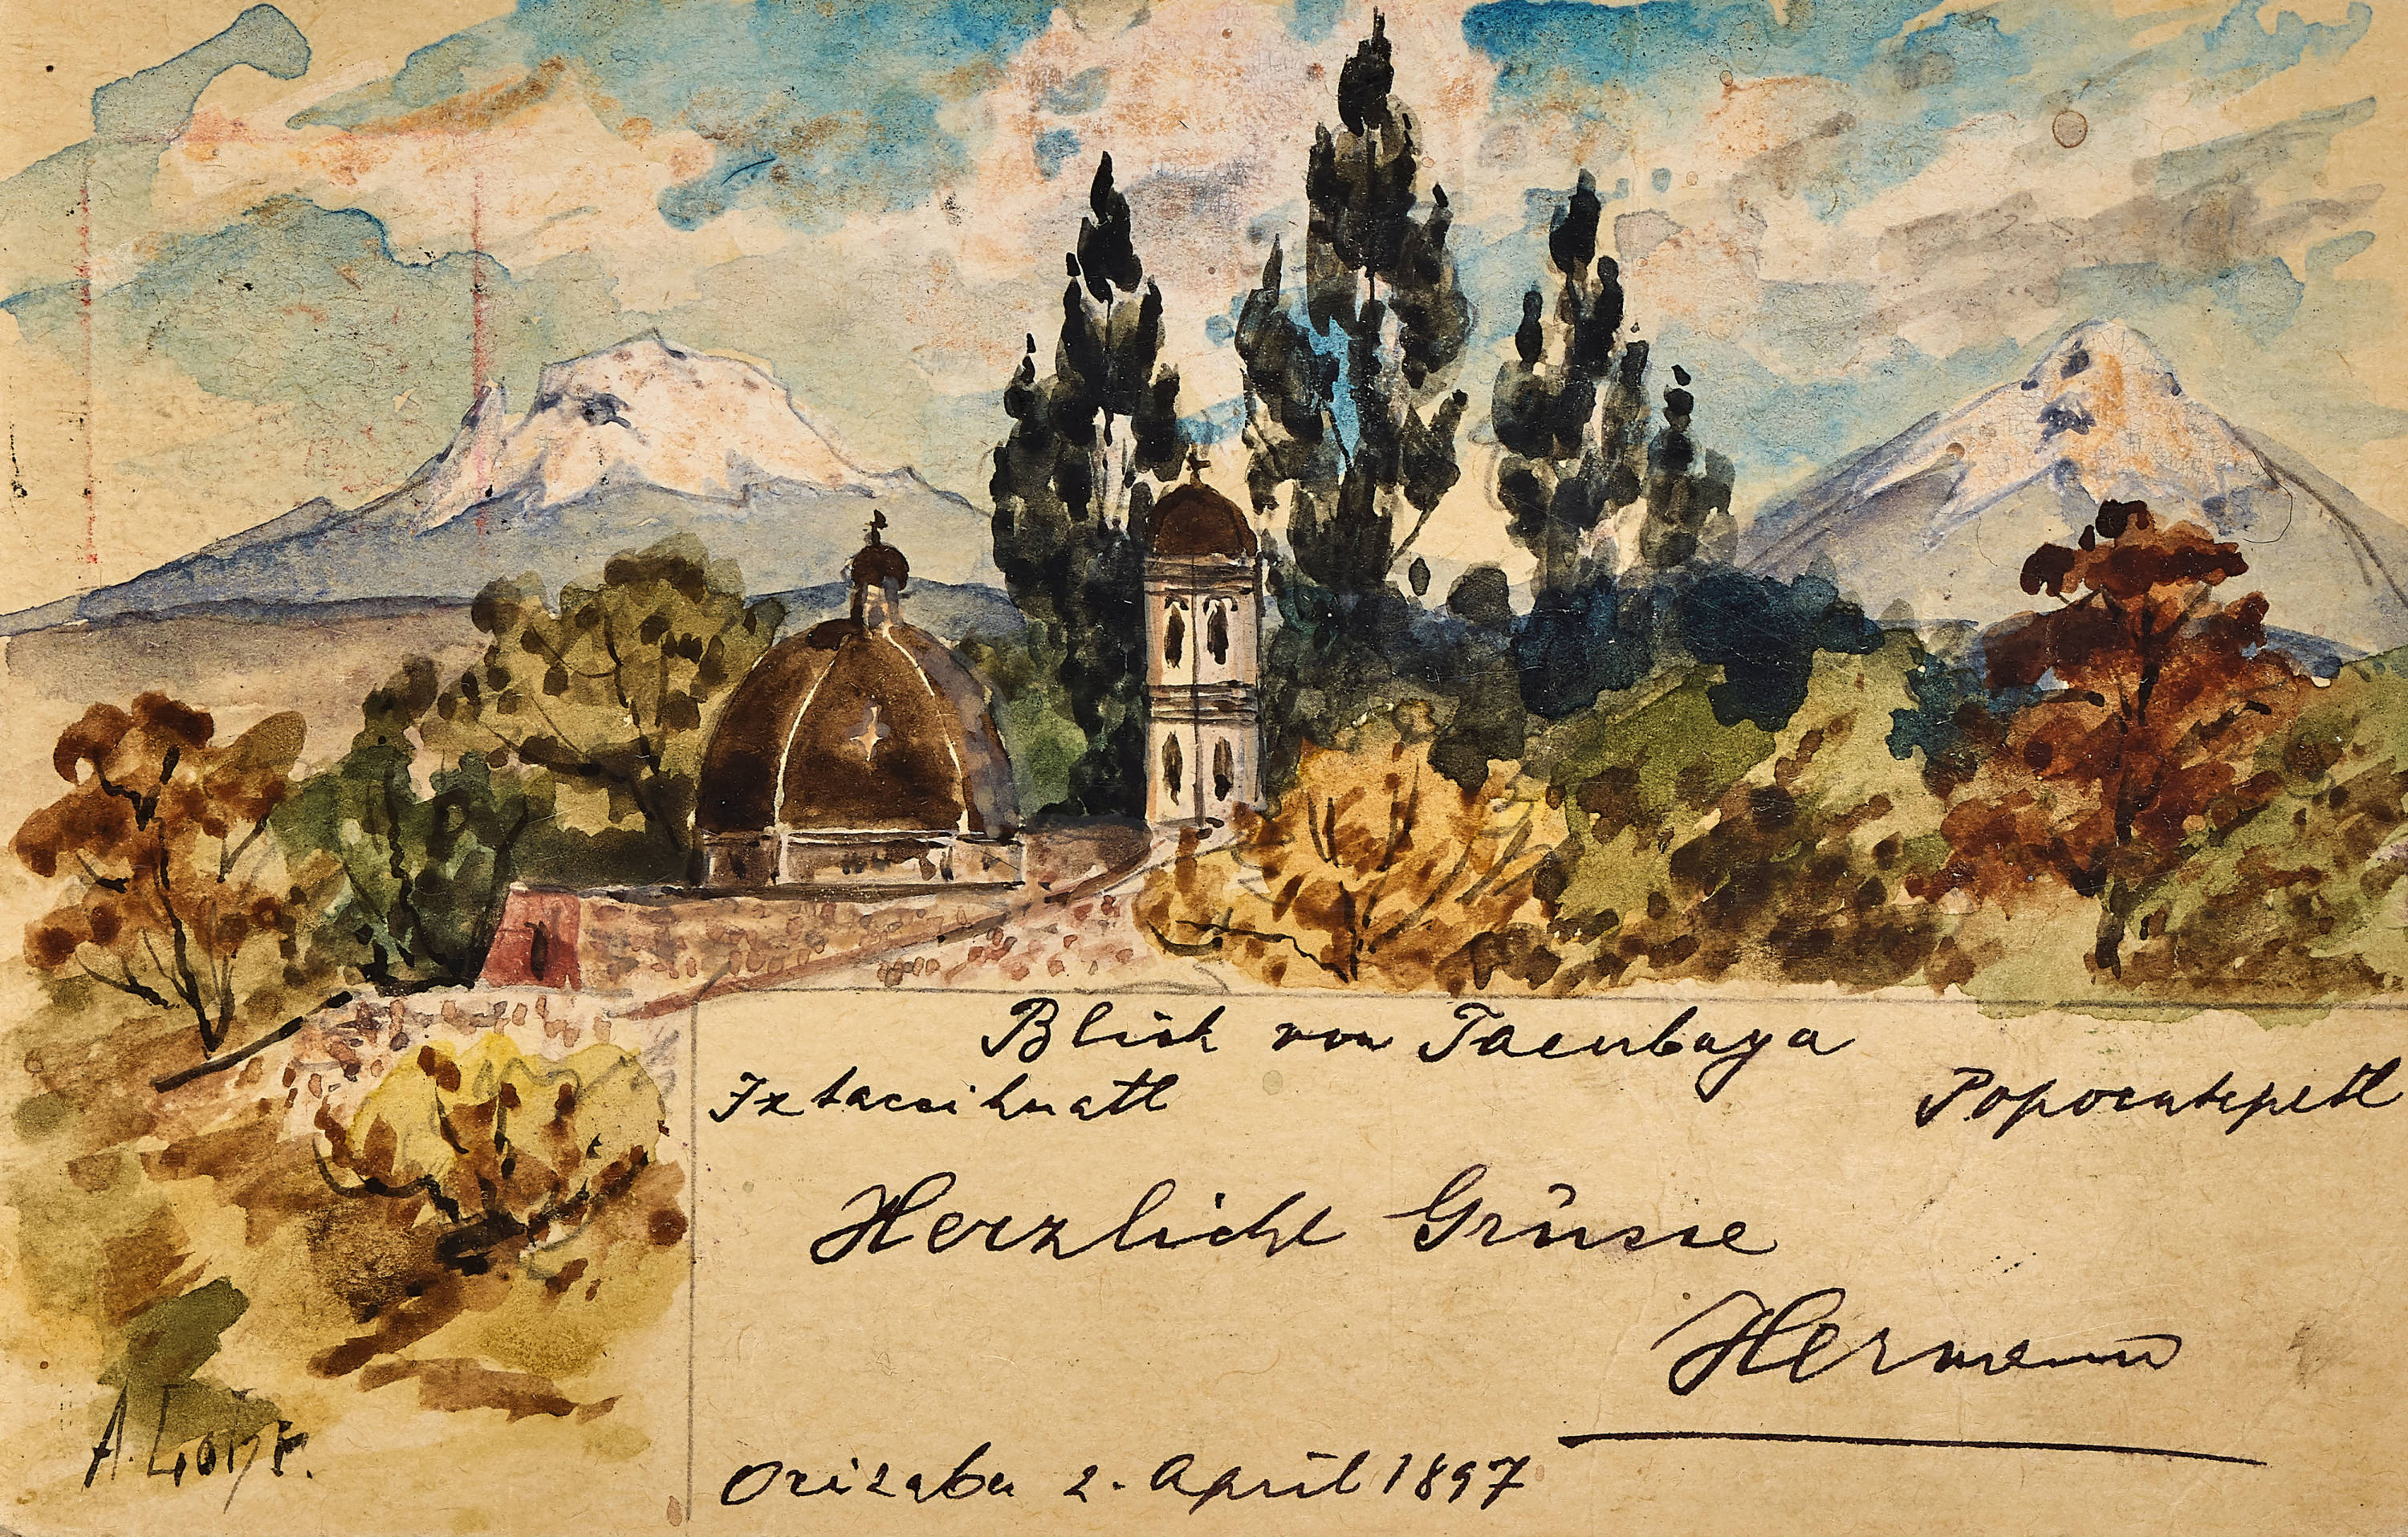 Blick von Tacubaya
Ixtaccihuatl Popocatepetl
Herzliche Grüsse
Hermann
Orizaba 2. April 1897
A.